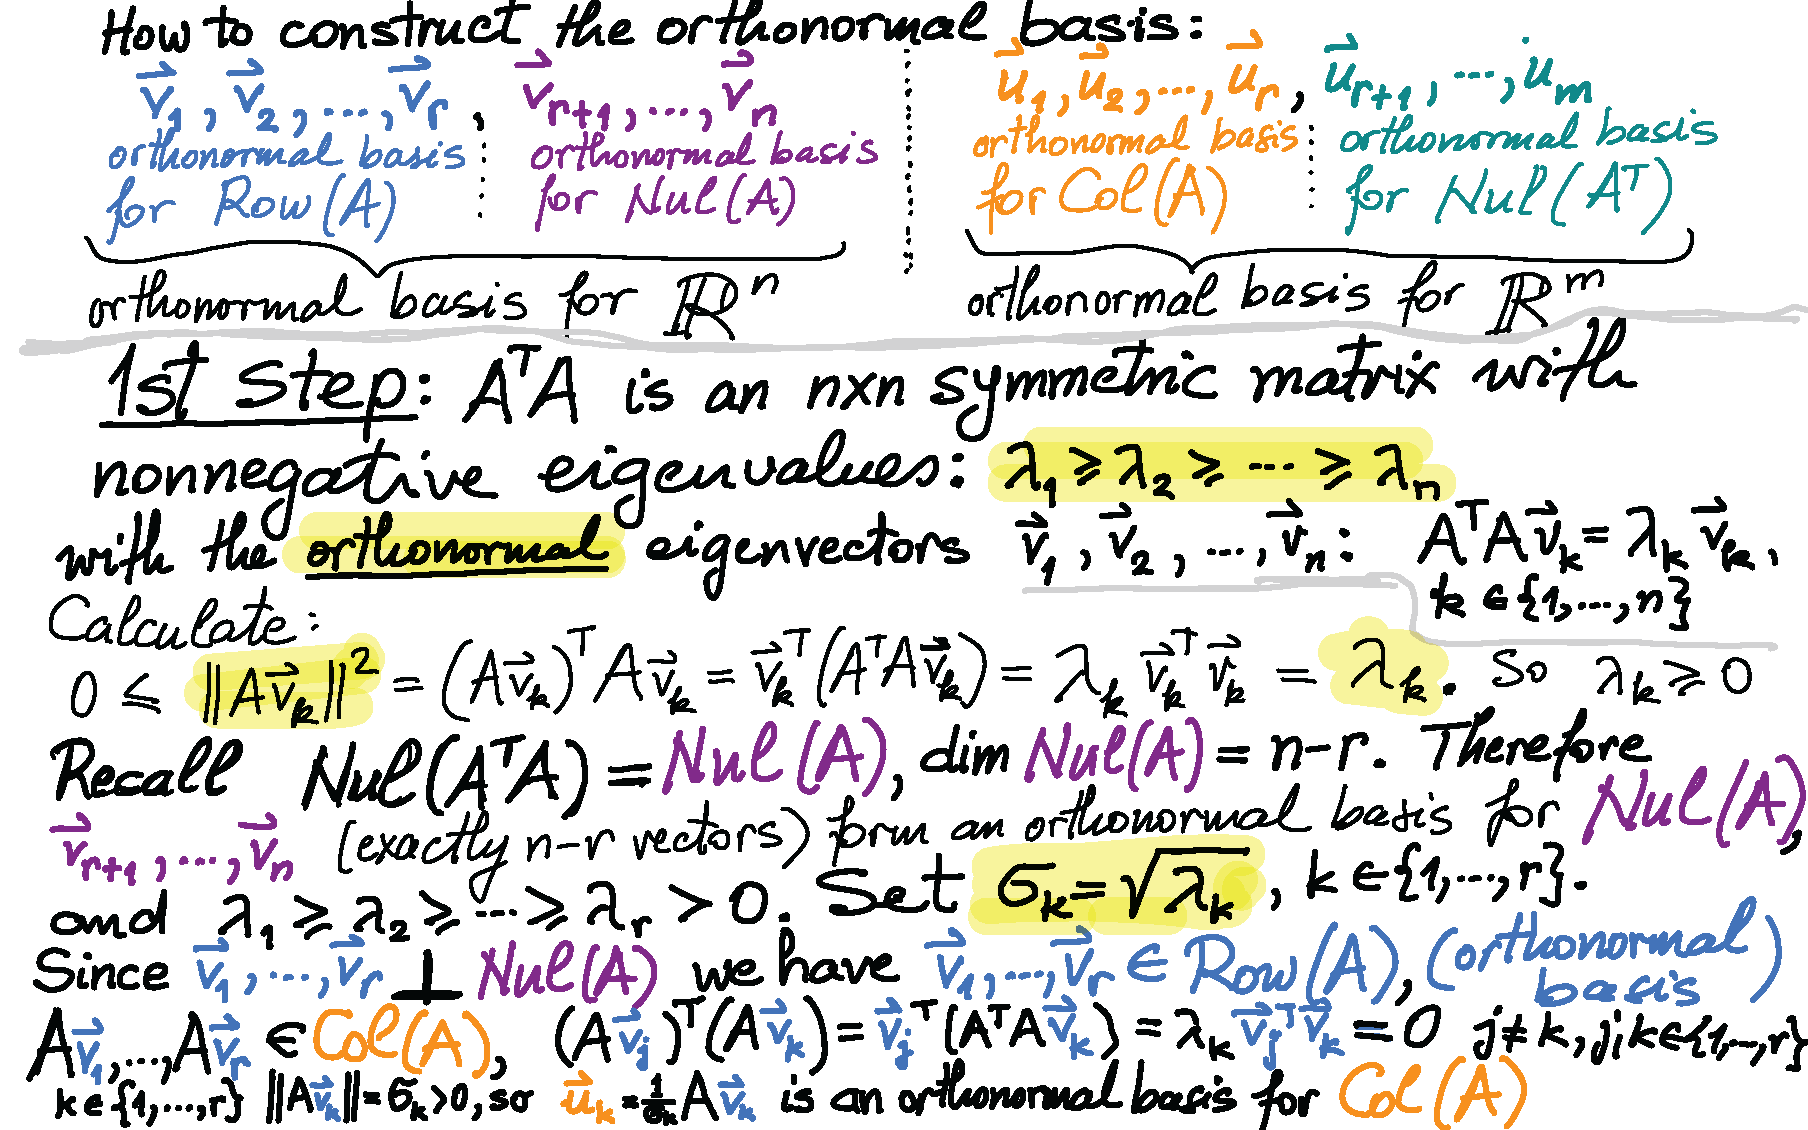 How to construct the orthonormal basis:
v⃗₁, v⃗₂, ..., v⃗ᵣ, v⃗ᵣ₊₁, ..., v⃗ₙ u⃗₁, u⃗₂, ..., u⃗ᵣ, u⃗ᵣ₊₁, ..., uₘ
orthonormal basis orthonormal basis orthonormal basis orthonormal basis
for Row(A) for Nul(A) for Col(A) for Nul(Aᵀ)
orthonormal basis for ℝⁿ orthonormal basis for ℝᵐ
1st Step: AᵀA is an n×n symmetric matrix with
nonnegative eigenvalues: λ₁ ⩾ λ₂ ⩾ ... ⩾ λₙ
with the orthonormal eigenvectors v⃗₁, v⃗₂, ..., v⃗ₙ: AᵀAv⃗ₖ = λₖ v⃗ₖ,
k ∈ {1,...,n}
Calculate:
0 ≤ ‖Av⃗ₖ‖² = (Av⃗ₖ)ᵀAv⃗ₖ = v⃗ₖᵀ(AᵀAv⃗ₖ) = λₖ v⃗ₖᵀv⃗ₖ = λₖ. So λₖ ⩾ 0
Recall Nul(AᵀA) = Nul(A), dim Nul(A) = n-r. Therefore
v⃗ᵣ₊₁, ..., v⃗ₙ (exactly n-r vectors) form an orthonormal basis for Nul(A),
and λ₁ ⩾ λ₂ ⩾ ... ⩾ λᵣ > 0. Set σₖ = √λₖ, k ∈ {1,...,r}.
Since v⃗₁, ..., v⃗ᵣ ⊥ Nul(A) we have v⃗₁, ..., v⃗ᵣ ∈ Row(A), (orthonormal basis)
Av⃗₁, ..., Av⃗ᵣ ∈ Col(A), (Av⃗ⱼ)ᵀ(Av⃗ₖ) = v⃗ⱼᵀ(AᵀAv⃗ₖ) = λₖ v⃗ⱼᵀv⃗ₖ = 0 j ≠ k, j,k ∈ {1,...,r}
k ∈ {1,...,r} ‖Av⃗ₖ‖ = σₖ > 0, so u⃗ₖ = 1/σₖ Av⃗ₖ is an orthonormal basis for Col(A)